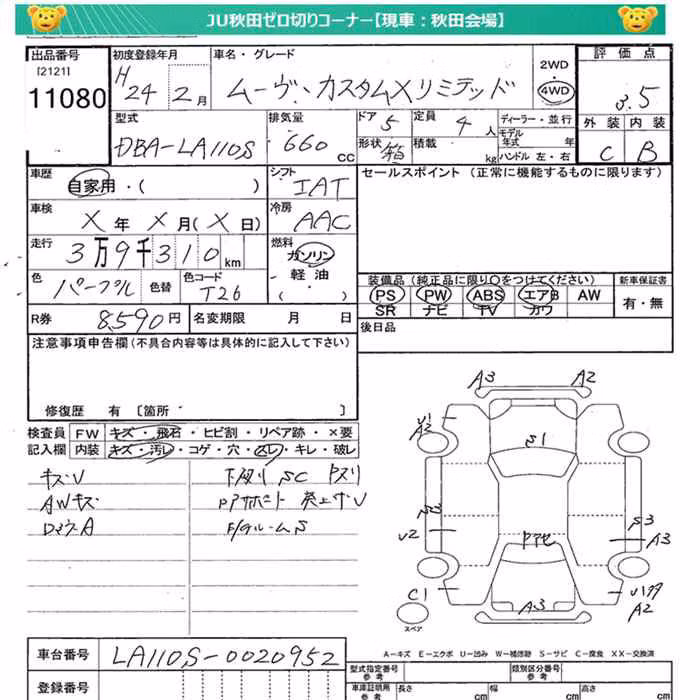 JU秋田ゼロ切りコーナー【現車：秋田会場】
出品番号 初度登録年月 車名・グレード 2WD 4WD 評価点
[2121] 11080 H 24年 2月 ムーヴ カスタムXリミテッド 3.5
型式 排気量 ドア 5 定員 4人 ディーラー・並行 外装 内装
モデル年式 年
DBA-LA110S 660 CC 形状 箱 積載 kg ハンドル 左・右 C B
車歴 シフト セールスポイント(正常に機能するものに限ります)
自家用・( ) IAT
車検 冷房
X年 X月(X日) AAC
走行 燃料
3万9千310km ガソリン
軽油
( )
色 パープル 色替 色コード T26
装備品(純正品に限り○をつけてください) 新車保証書
PS PW ABS エアB AW 有・無
SR ナビ TV カワ
R券 8590円 名変期限 月 日 後日品
注意事項申告欄(不具合内容等は具体的に記入して下さい)
修復歴 有 [箇所 ]
検査員 FW キズ・飛石・ヒビ割・リペア跡・×要
記入欄 内装 キズ・汚レ・コゲ・穴・スレ・キレ・破レ
キズU
AWキズ
A3 A2
U1
A2
S1
S3
A3
U2
C1
A3
A2
スペア
A－キズ E－エクボ U－凹み W－補修跡 S－サビ C－腐食 XX－交換済
車台番号 LA110S-0020952
登録番号
型式指定番号 参考 類別区分番号 参考
車庫証明用 参考 長さ cm 幅 cm 高さ cm